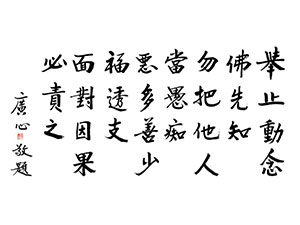 舉止動念
佛先知
勿把他人
當愚痴
悪多善少
福透支
面對因果
必責之
廣心敬題